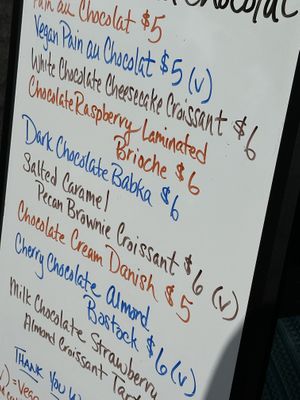 Chocolat
Pain au Chocolat $5
Vegan Pain au Chocolat $5 (v)
White Chocolate Cheesecake Croissant $6
Chocolate Raspberry Laminated
Brioche $6
Dark Chocolate Babka $6
Salted Caramel
Pecan Brownie Croissant $6 (v)
Chocolate Cream Danish $5
Cherry Chocolate Almond
Bostock $6 (v)
Milk Chocolate Strawberry
Almond Croissant Tart
Thank You
= Vegan